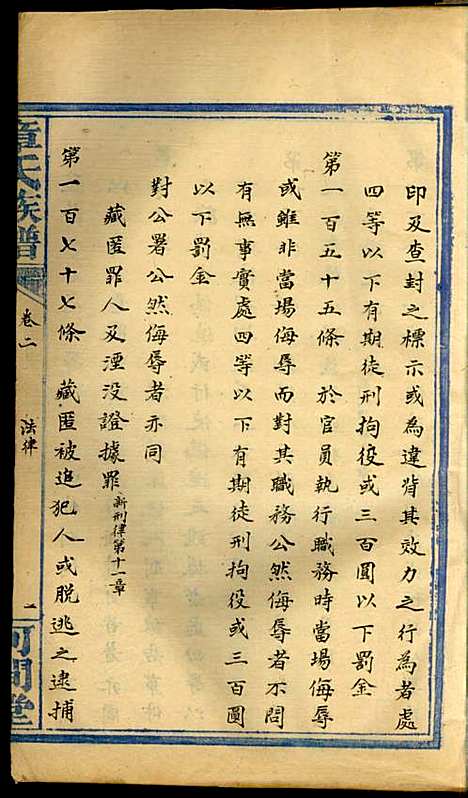 印及查封之標示或為違背其效力之行為者處
四等以下有期徒刑拘役或三百圓以下罰金
第一百五十五條 於官員執行職務時當場侮辱
或雖非當場侮辱而對其職務公然侮辱者不問
有無事實處四等以下有期徒刑拘役或三百圓
以下罰金
對公署公然侮辱者亦同
藏匿罪人及湮没證據罪 新刑律第十一章
第一百七十七條 藏匿被追犯人或脱逃之逮捕
章氏族譜 卷二 法律 二 河間堂